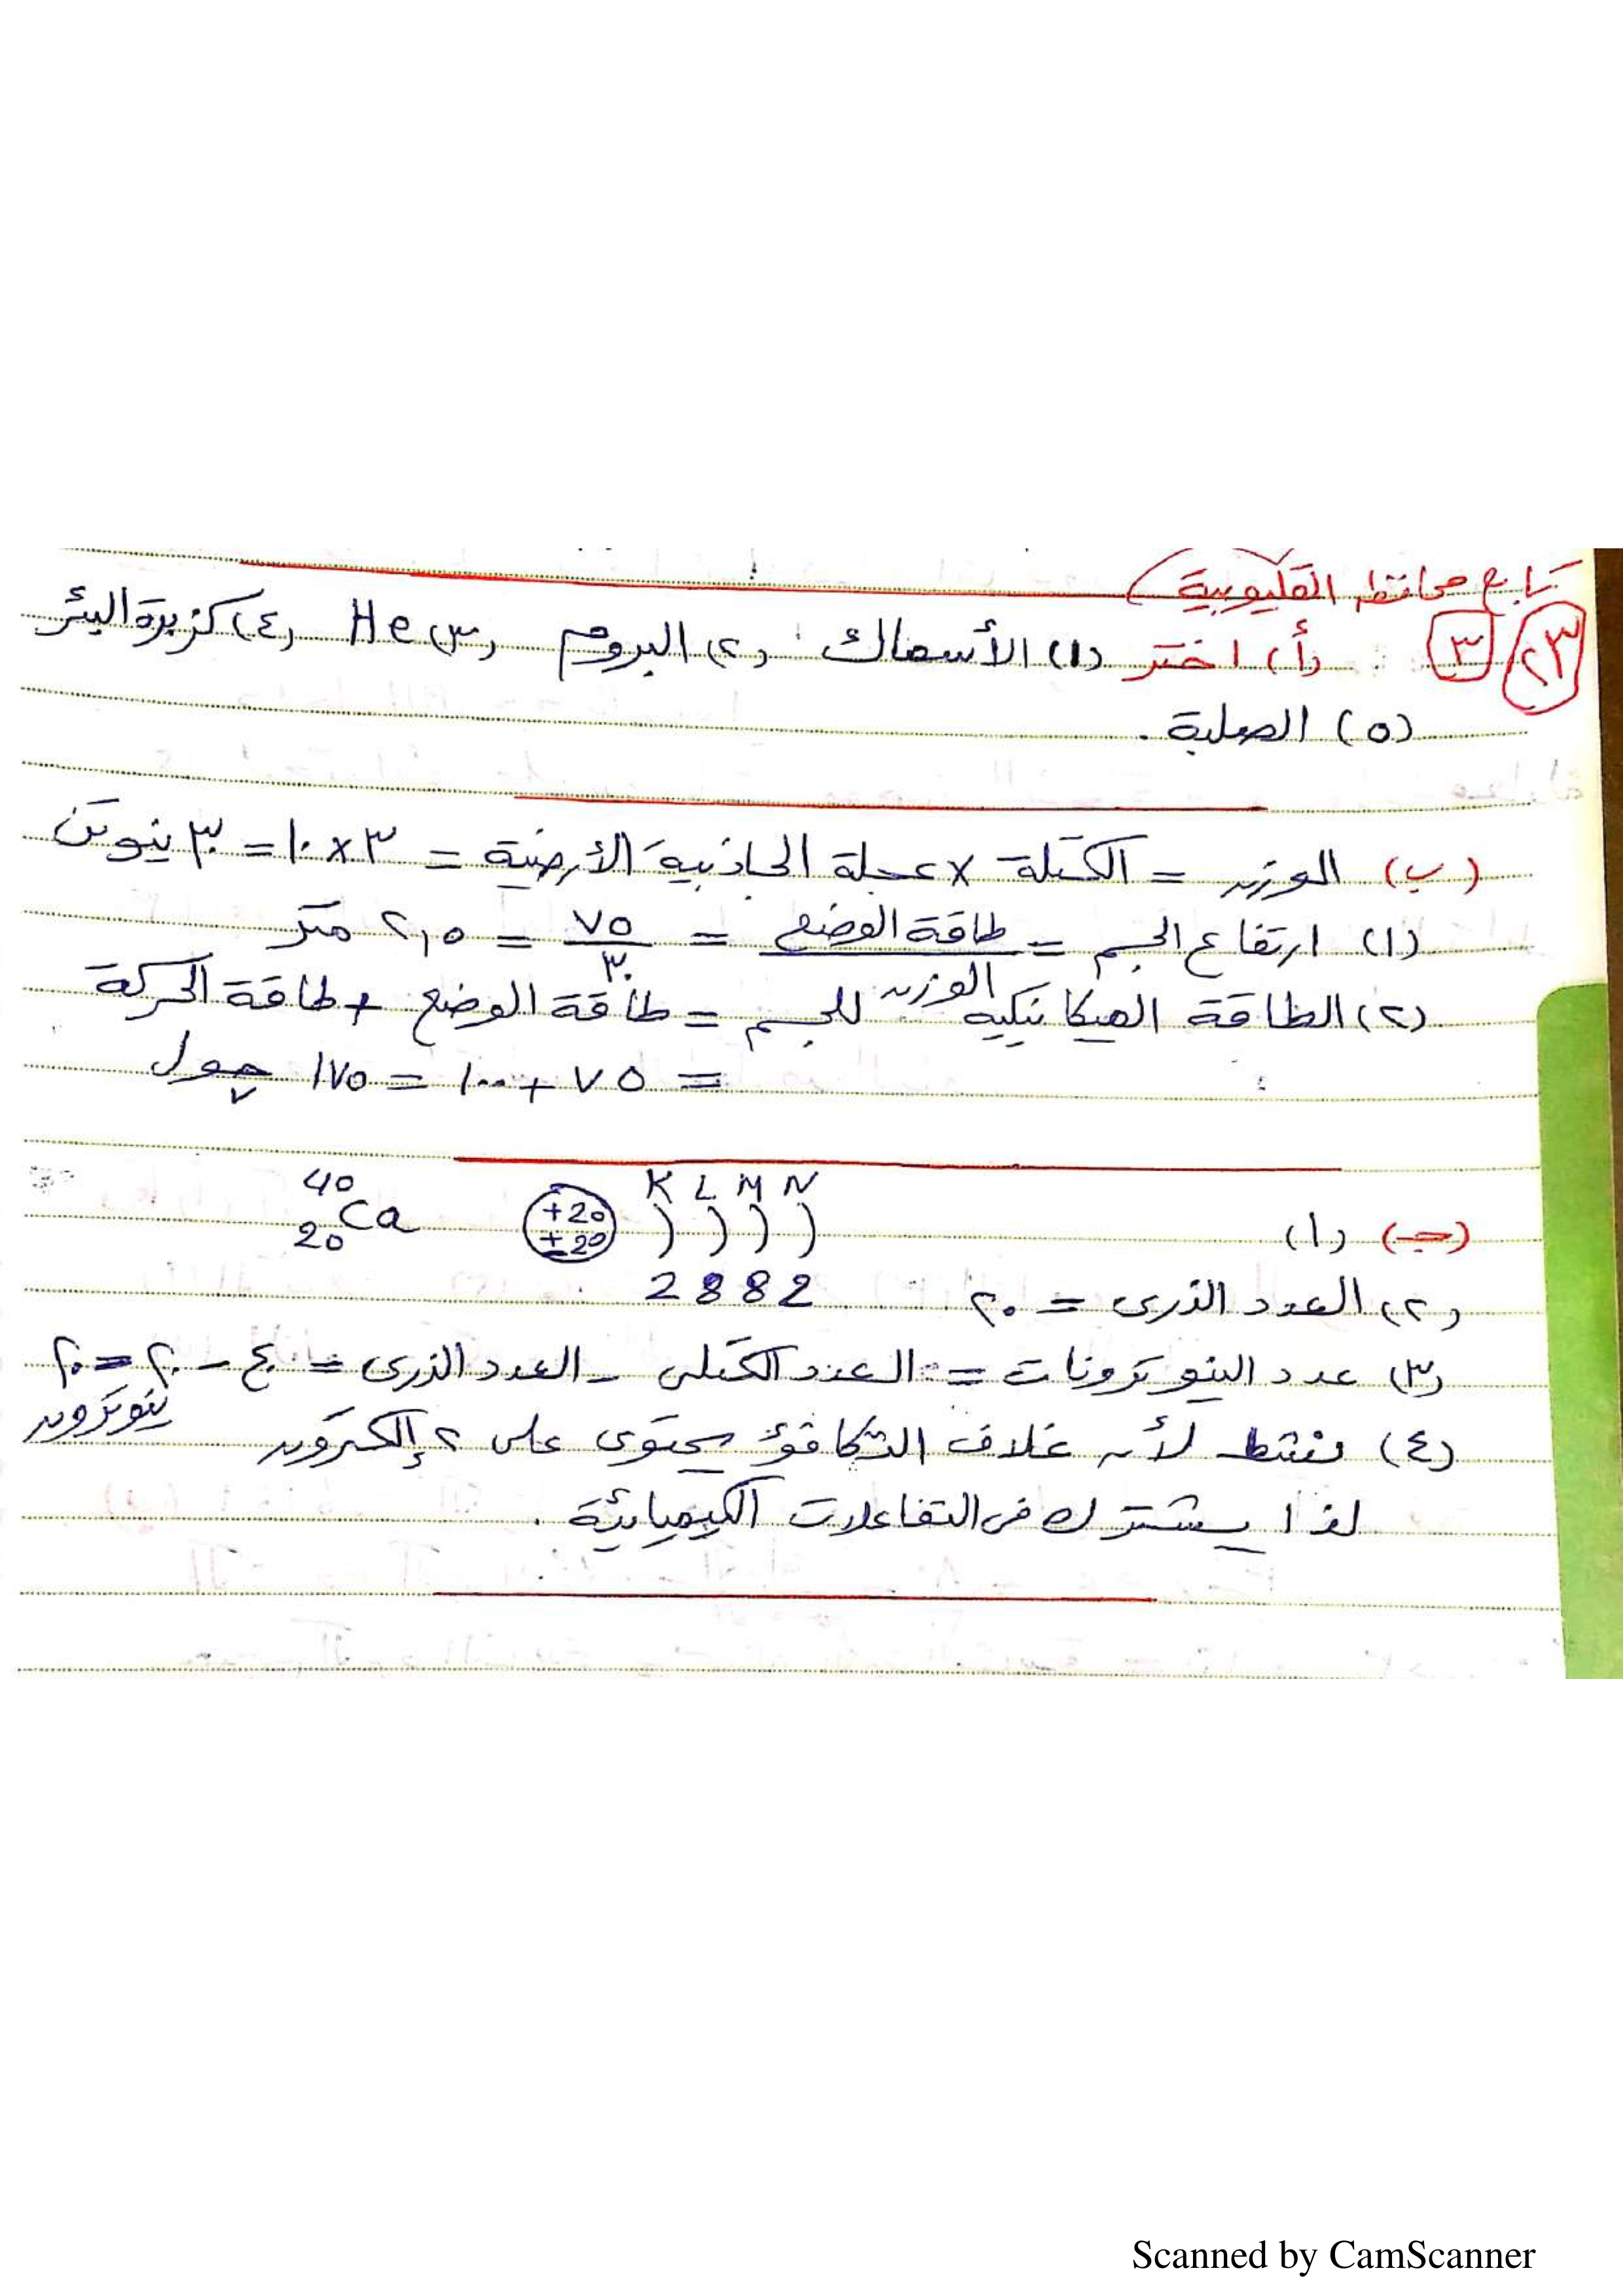 تابع محافظة القليوبية
٢٣ ٣ (أ) اختر (١) الأسماك (٢) البروم (٣) He (٤) كزبرة البئر
(٥) الصلبة .
(ب) الوزن = الكتلة × عجلة الجاذبية الأرضية = ٣ × ١٠ = ٣٠ نيوتن
(١) ارتفاع الجسم = طاقة الوضع / الوزن = ٧٥ / ٣٠ = ٢,٥ متر
(٢) الطاقة الميكانيكية للجسم = طاقة الوضع + طاقة الحركة
= ٧٥ + ١٠٠ = ١٧٥ جول
(جـ) (١) K L M N +20 ±20 40 20 Ca
(٢) العدد الذرى = ٢٠ 2 8 8 2
(٣) عدد النيوترونات = العدد الكتلى - العدد الذرى = ٤٠ - ٢٠ = ٢٠
نيوترون
(٤) نشط لأن غلاف التكافؤ يحتوى على ٢ إلكترون
لذا يشترك فى التفاعلات الكيميائية .
Scanned by CamScanner